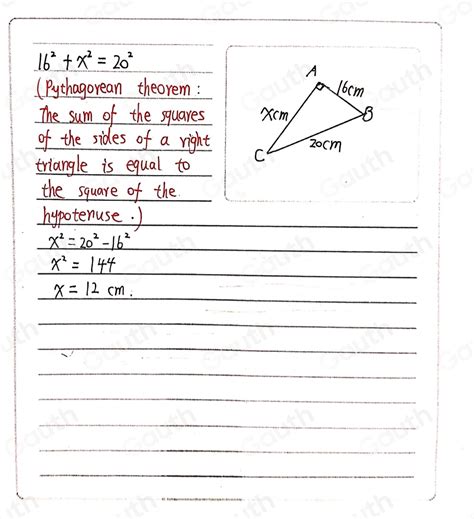 16² + x² = 20²
(Pythagorean theorem:
The sum of the squares
of the sides of a right
triangle is equal to
the square of the
hypotenuse.)
x² = 20² - 16²
x² = 144
x = 12 cm.
A
16cm
xcm
B
20cm
C
Gauth